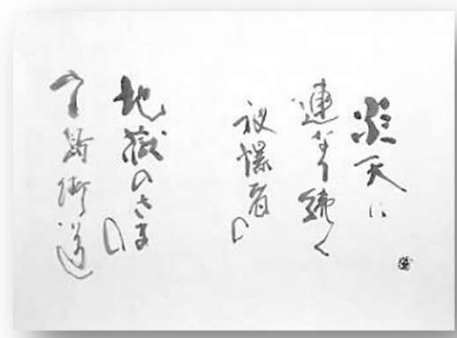 炎天に
連なり続く
被爆者の
地獄のさまの
可部街道